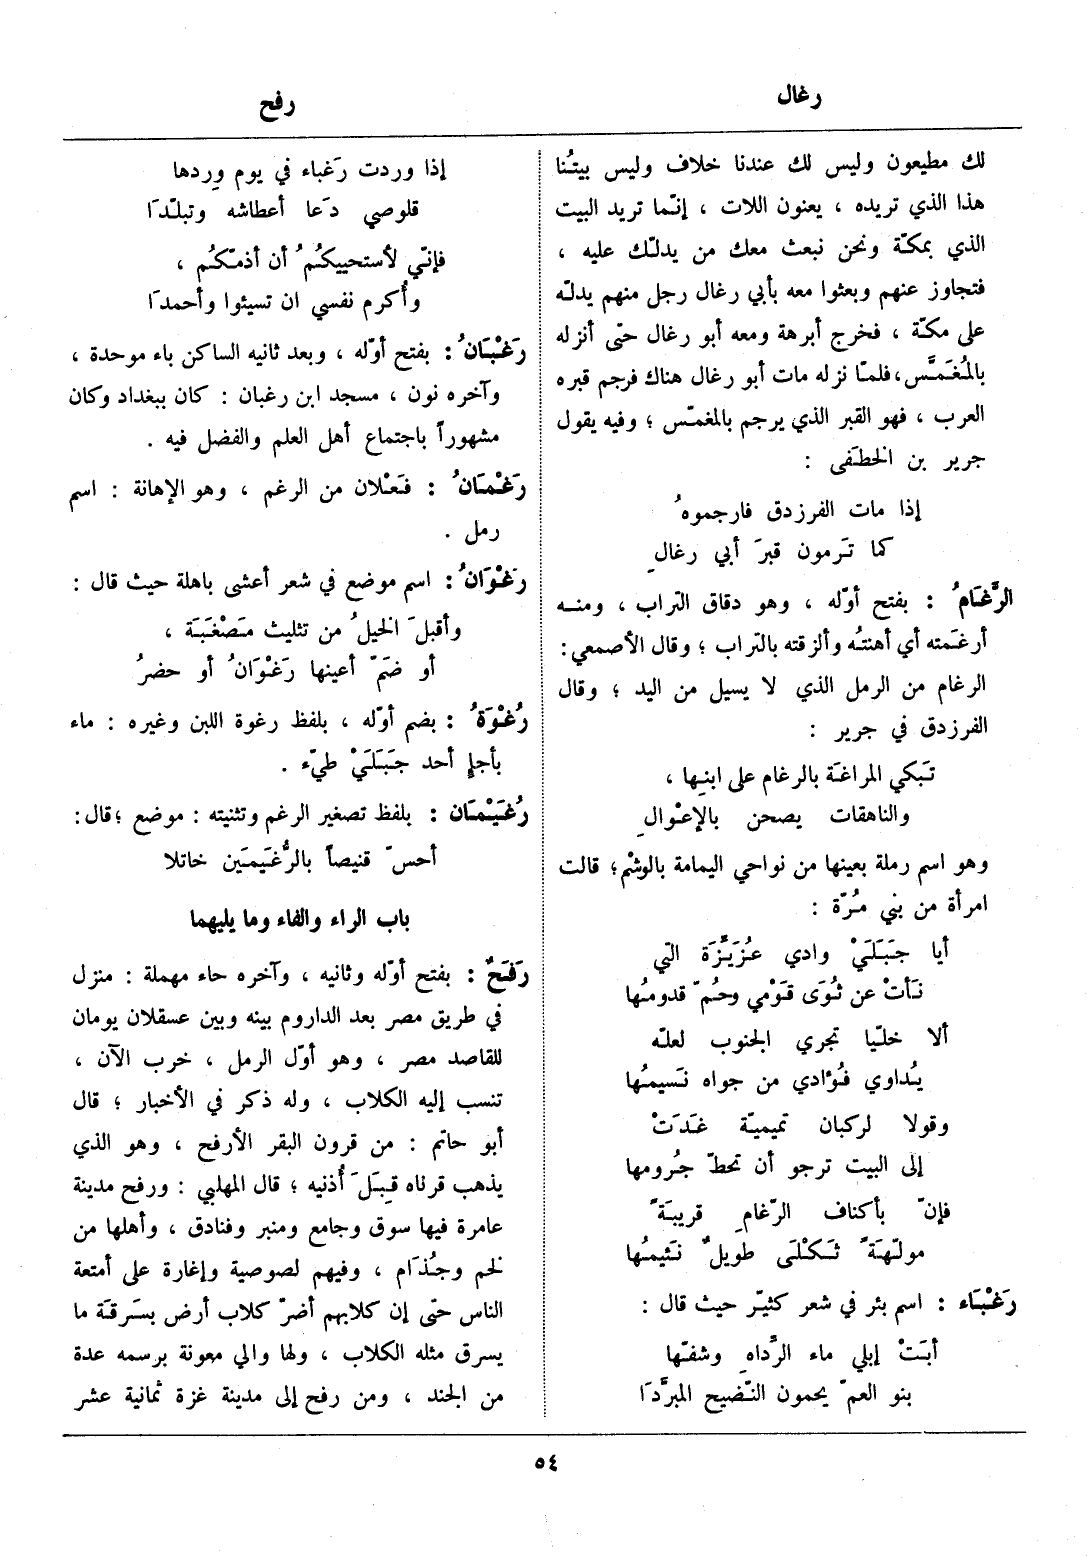 رغال
رفح
لك مطيعون وليس لك عندنا خلاف وليس بيتُنا
هذا الذي تريده ، يعنون اللات ، إنّما تريد البيت
الذي بمكّة ونحن نبعث معك من يدلّك عليه ،
فتجاوز عنهم وبعثوا معه بأبي رغال رجل منهم يدلّه
على مكّة ، فخرج أبرهة ومعه أبو رغال حتّى أنزله
بالمُغَمَّس، فلمّا نزله مات أبو رغال هناك فرجم قبره
العرب ، فهو القبر الذي يرجم بالمغمّس ؛ وفيه يقول
جرير بن الخطفى :
إذا مات الفرزدق فارجموهُ
كما تَرمون قبرَ أبي رغالِ
الرَّغَامُ : بفتح أوّله ، وهو دقاق التراب ، ومنه
أرغَمته أي أهنتُه وألزقته بالتراب ؛ وقال الأصمعي :
الرغام من الرمل الذي لا يسيل من اليد ؛ وقال
الفرزدق في جرير :
تَبكي المراغَة بالرغام على ابنِها ،
والناهقات يصحن بالإعْوالِ
وهو اسم رملة بعينها من نواحي اليمامة بالوشْم ؛ قالت
امرأة من بني مُرّة :
أيا جبَلَيْ وادي عُزَيْزَة التي
نَأتْ عن ثُوَى قَوْمي وحُمّ قدومُها
ألا خلّيا تجري الجنوب لعلّه
يُداوي فُؤادي من جواه نَسيمُها
وقولا لركبان تميميّة غَدَتْ
إلى البيت ترجو أن تحطّ جُرومها
فإنّ بأكناف الرّغامِ قريبَةً
مولّهَةً ثَكْلَى طويلٌ نَئيمُها
رَغْبَاء : اسم بئر في شعر كثيّر حيث قال :
أبَتْ إبلي ماء الرَّداهِ وشفّها
بنو العمّ يحمون النّضيح المبرَّدَا
إذا وردت رَغباء في يوم وِردها
قلوصي دَعا أعطاشه وتبلّدَا
فإنّي لأستحييكُمُ أن أذمّكُم ،
وأُكرم نفسي ان تسيئوا وأحمدَا
رَغْبَانُ : بفتح أوّله ، وبعد ثانيه الساكن باء موحدة ،
وآخره نون ، مسجد ابن رغبان : كان ببغداد وكان
مشهوراً باجتماع أهل العلم والفضل فيه .
رَغْمَانُ : فَعْلان من الرغم ، وهو الإهانة : اسم
رمل .
رَغْوَانُ : اسم موضع في شعر أعشى باهلة حيث قال :
وأقبلَ الخيلُ من تثليث مَصْغَبَة ،
أو ضَمّ أعينها رَغْوَانُ أو حضرُ
رُغْوَةُ : بضم أوّله ، بلفظ رغوة اللبن وغيره : ماء
بأجإ أحد جَبَلَيْ طيّء .
رُغَيْمَان : بلفظ تصغير الرغم وتثنيته : موضع ؛ قال :
أحسّ قنيصاً بالرُّغَيمَين خاتلا
باب الراء والفاء وما يليهما
رَفَحٌ : بفتح أوّله وثانيه ، وآخره حاء مهملة : منزل
في طريق مصر بعد الداروم بينه وبين عسقلان يومان
للقاصد مصر ، وهو أوّل الرمل ، خرب الآن ،
تنسب إليه الكلاب ، وله ذكر في الأخبار ؛ قال
أبو حاتم : من قرون البقر الأرفح ، وهو الذي
يذهب قرناه قِبَلَ أُذنيه ؛ قال المهلبي : ورفح مدينة
عامرة فيها سوق وجامع ومنبر وفنادق ، وأهلها من
لخم وجُذَام ، وفيهم لصوصية وإغارة على أمتعة
الناس حتّى إن كلابهم أضرّ كلاب أرض بسَرقَة ما
يسرق مثله الكلاب ، ولها والي معونة برسمه عدة
من الجند ، ومن رفح إلى مدينة غزة ثمانية عشر
٥٤